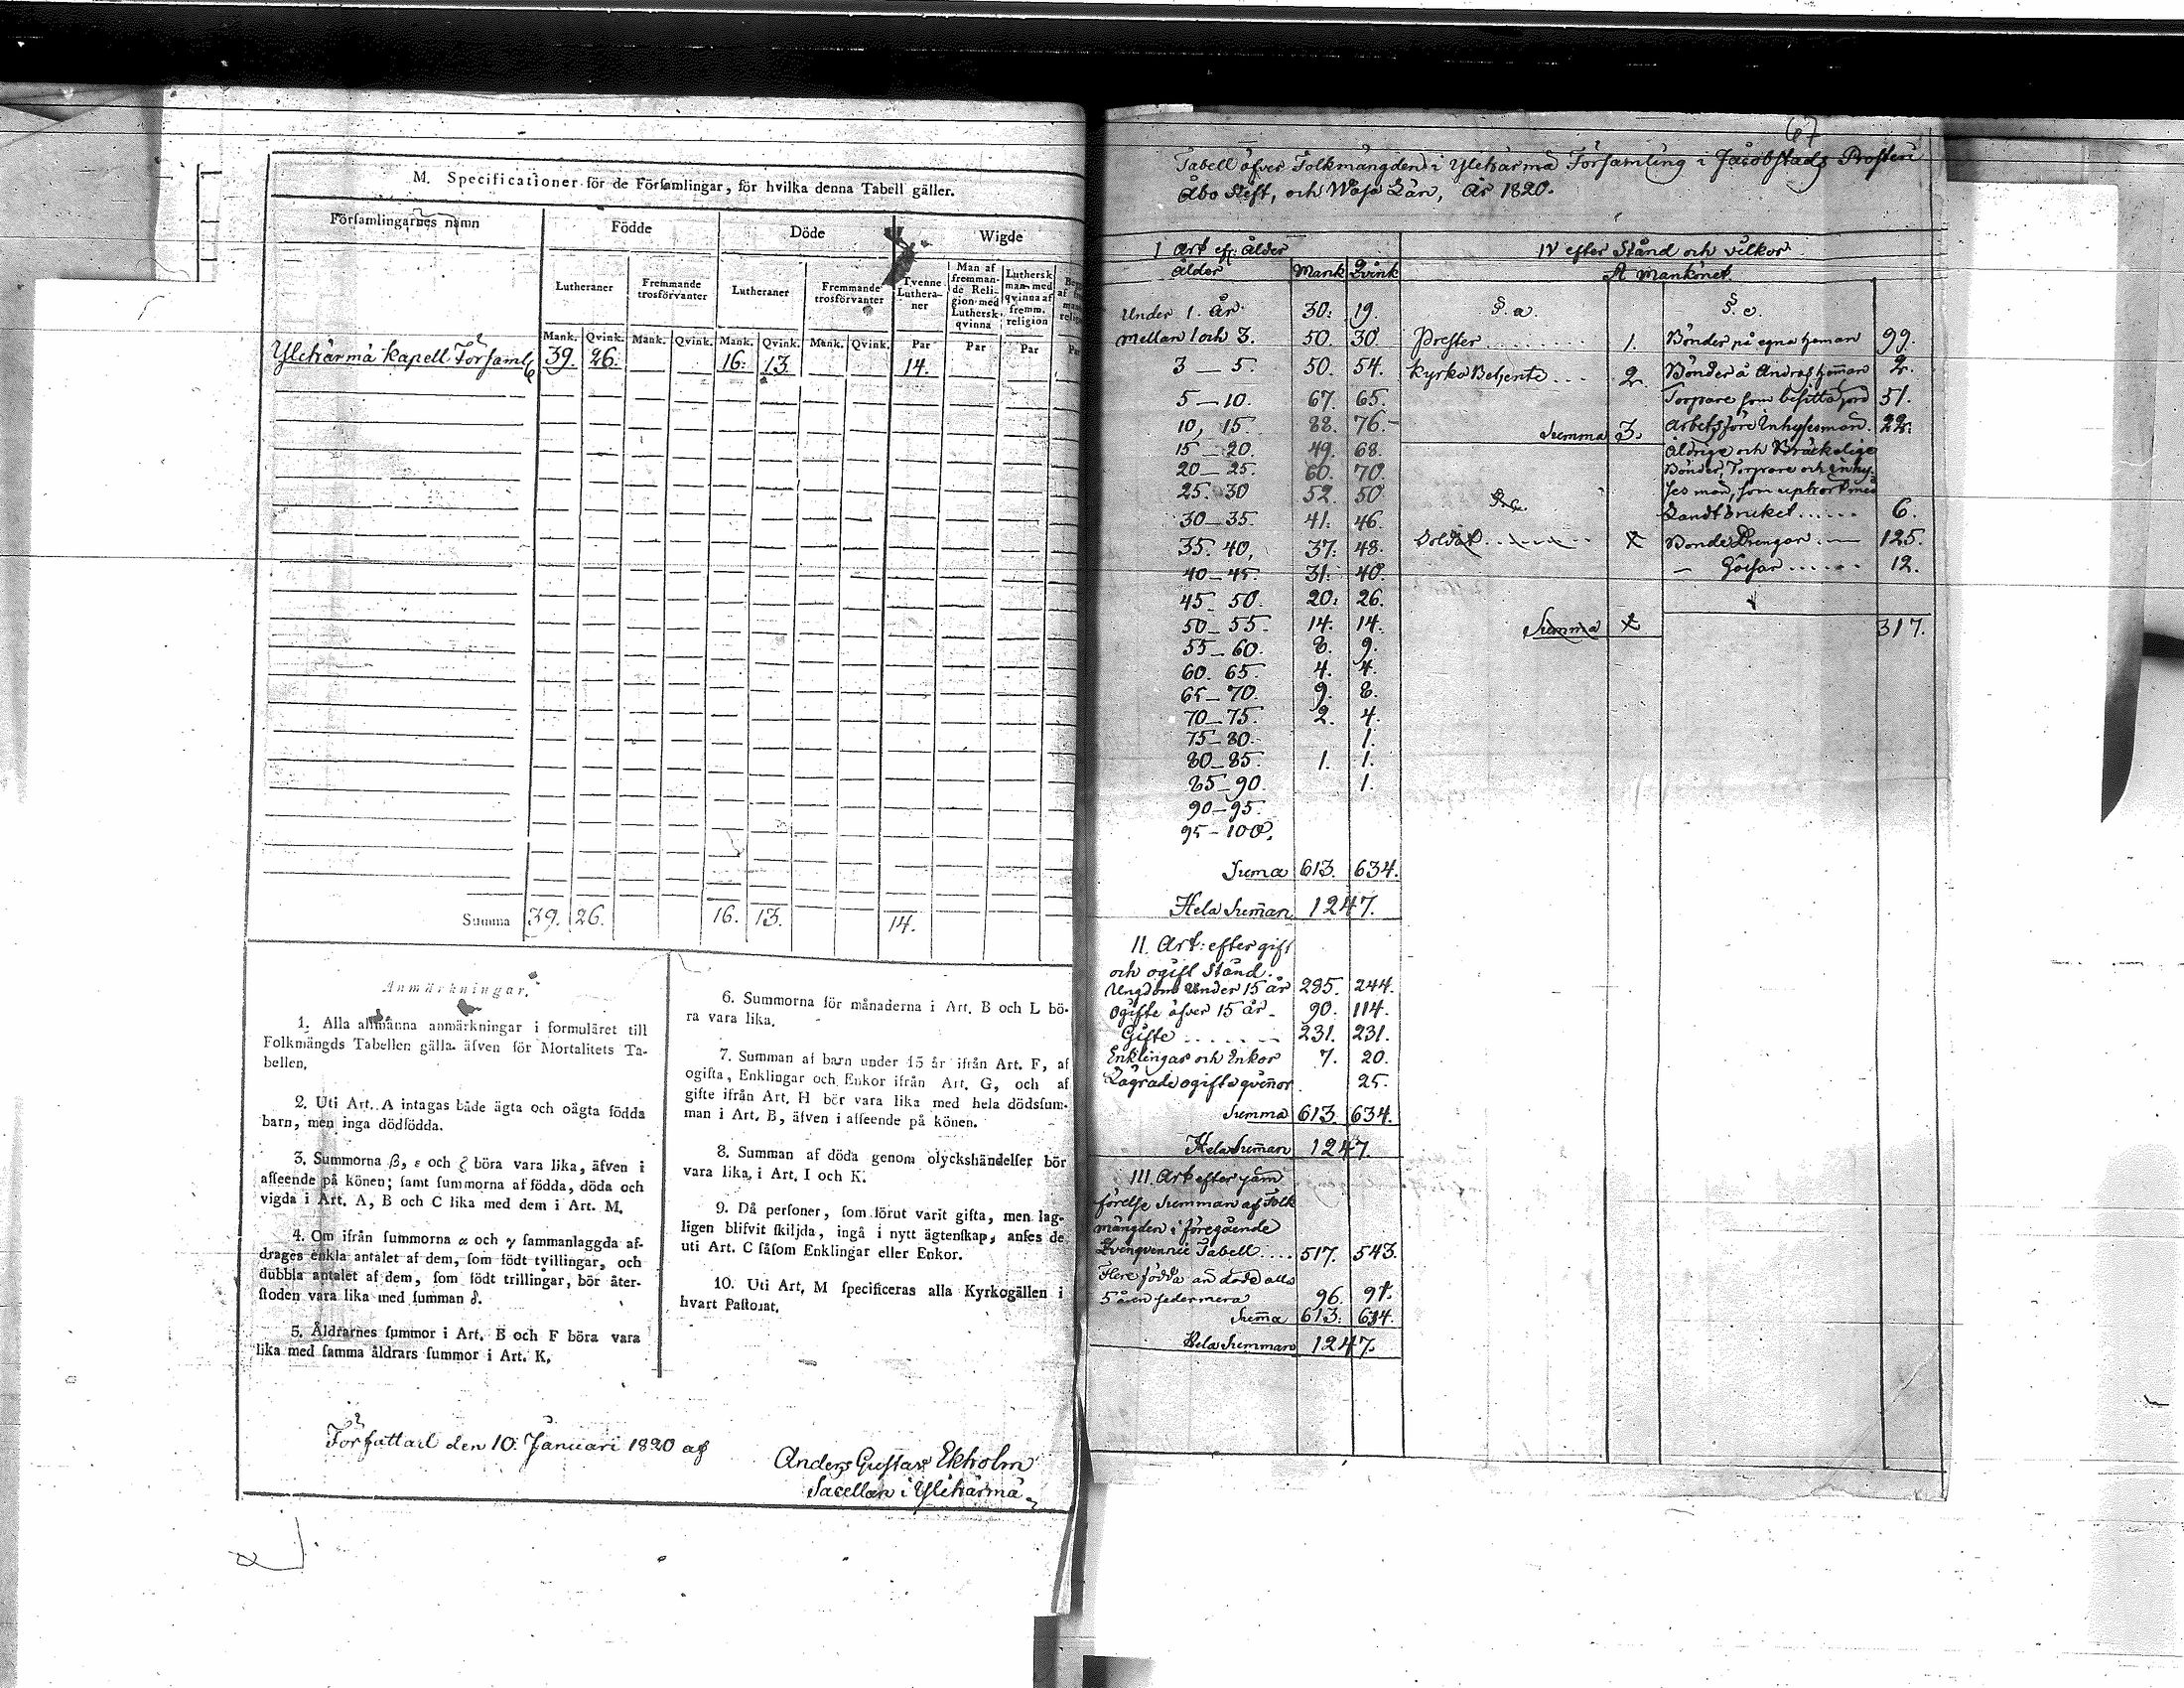 M. Specificationer för de Församlingar, för hvilka denna Tabell gäller.
Församlingarnes namn Födde Döde Wigde
Lutheraner Fremmande trosförvanter Lutheraner Fremmande trosförvanter Tvenne Lutheraner Man af fremmande Religion med Luthersk qvinna Luthersk man med qvinna af fremm. religion
Mank. Qvink. Mank. Qvink. Mank. Qvink. Mank. Qvink. Par Par Par
Ylehärmä Kapell Församl 39. 26. 16. 13. 14.
Summa 39. 26. 16. 13. 14.
Anmärkningar.
1. Alla allmänna anmärkningar i formuläret till
Folkmängds Tabellen gälla äfven för Mortalitets Ta-
bellen.
2. Uti Art. A intagas både ägta och oägta födda
barn, men inga dödfödda.
3. Summorna β, ε och ζ böra vara lika, äfven i
affeende på könen; famt fummorna af födda, döda och
vigda i Art. A, B och C lika med dem i Art. M.
4. Om ifrån fummorna α och γ fammanlaggda af-
drages enkla antalet af dem, fom födt tvillingar, och
dubbla antalet af dem, fom födt trillingar, bör åter-
ftoden vara lika med fumman δ.
5. Åldrarnes fummor i Art. B och F böra vara
lika med famma åldrars fummor i Art. K.
6. Summorna för månaderna i Art. B och L bö-
ra vara lika.
7. Summan af barn under 15 år ifrån Art. F, af
ogifta, Enklingar och Enkor ifrån Art. G, och af
gifte ifrån Art. H bör vara lika med hela dödsfum-
man i Art. B, äfven i affeende på könen.
8. Summan af döda genom olyckshändelfer bör
vara lika, i Art. I och K.
9. Då perfoner, fom förut varit gifta, men lag-
ligen blifvit fkiljda, ingå i nytt ägtenfkap, anfes de
uti Art. C fåfom Enklingar eller Enkor.
10. Uti Art. M fpecificeras alla Kyrkogällen i
hvart Paftorat.
Författad den 10. Januari 1820 af
Anders Gustav Ekholm
Sacellan i Ylehärmä
67
Tabell öfver Folkmängden i Ylehärmä Församling i Jacobstads Prosteri
Åbo Stift, och Wasa Län, År 1820.
I Art eft: Ålder
Ålder Mank Qvink
Under 1. År 30. 19.
Mellan 1 och 3. 50. 30.
3 — 5. 50. 54.
5 — 10. 67. 65.
10, 15. 88. 76.
15 — 20. 49. 68.
20 — 25. 60. 70.
25. 30 52. 50
30 — 35. 41. 46.
35. 40. 37. 48.
40 — 45. 31. 40.
45 — 50. 20. 26.
50 — 55. 14. 14.
55 — 60. 8. 9.
60. 65. 4. 4.
65 — 70. 9. 8.
70 — 75. 2. 4.
75 — 80. 1.
80 — 85. 1. 1.
85 — 90. 1.
90 — 95.
95 — 100.
Suma 613. 634.
Hela Suman 1247.
II. Art: efter gift
och ogift Stånd.
Ungdom Under 15 år 285. 244.
Ogifte öfver 15 år 90. 114.
Gifte 231. 231.
Enklingar och Enkor 7. 20.
Lägrade ogifte qvinor 25.
Summa 613. 634.
Hela Suman 1247.
III. Art efter jäm
förelse Summan af Folk
mängden i föregående
Tabell 517. 543.
Flere födda än döde alla
5 åren sedermera 96. 91.
Suma 613. 634.
Hela Summan 1247.
IV efter Stånd och vilkor
A Mankönet
§. a.
Prester 1.
Kyrko Betjente 2
Summa 3.
Soldat
Summa
§. e.
Bönder på egna heman 99.
Bönder å Andras heman 2.
Torpare som besitta jord 51.
Arbetsföre Inhysesmän 22.
Åldrige och Bräckelige
Bönder, Torpare och inhy-
ses män, som uphört med
Landtbruket 6.
Bonde Drengar 125.
— Gossar 12.
317.